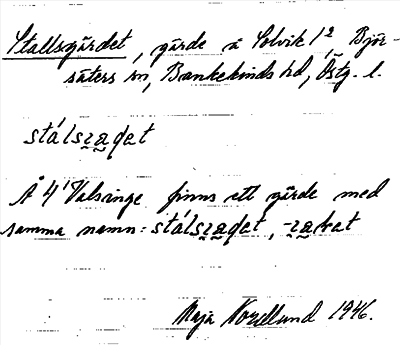 Stallsgärdet, gärde å Solvik 1², Björ-
säters sn, Bankekinds hd, Östg. l.
stálsʐa̱ḍet
Å 4¹ Valsinge finns ett gärde med
samma namn: stálsʐa̱ḍet,
Maja Nordlund 1946.